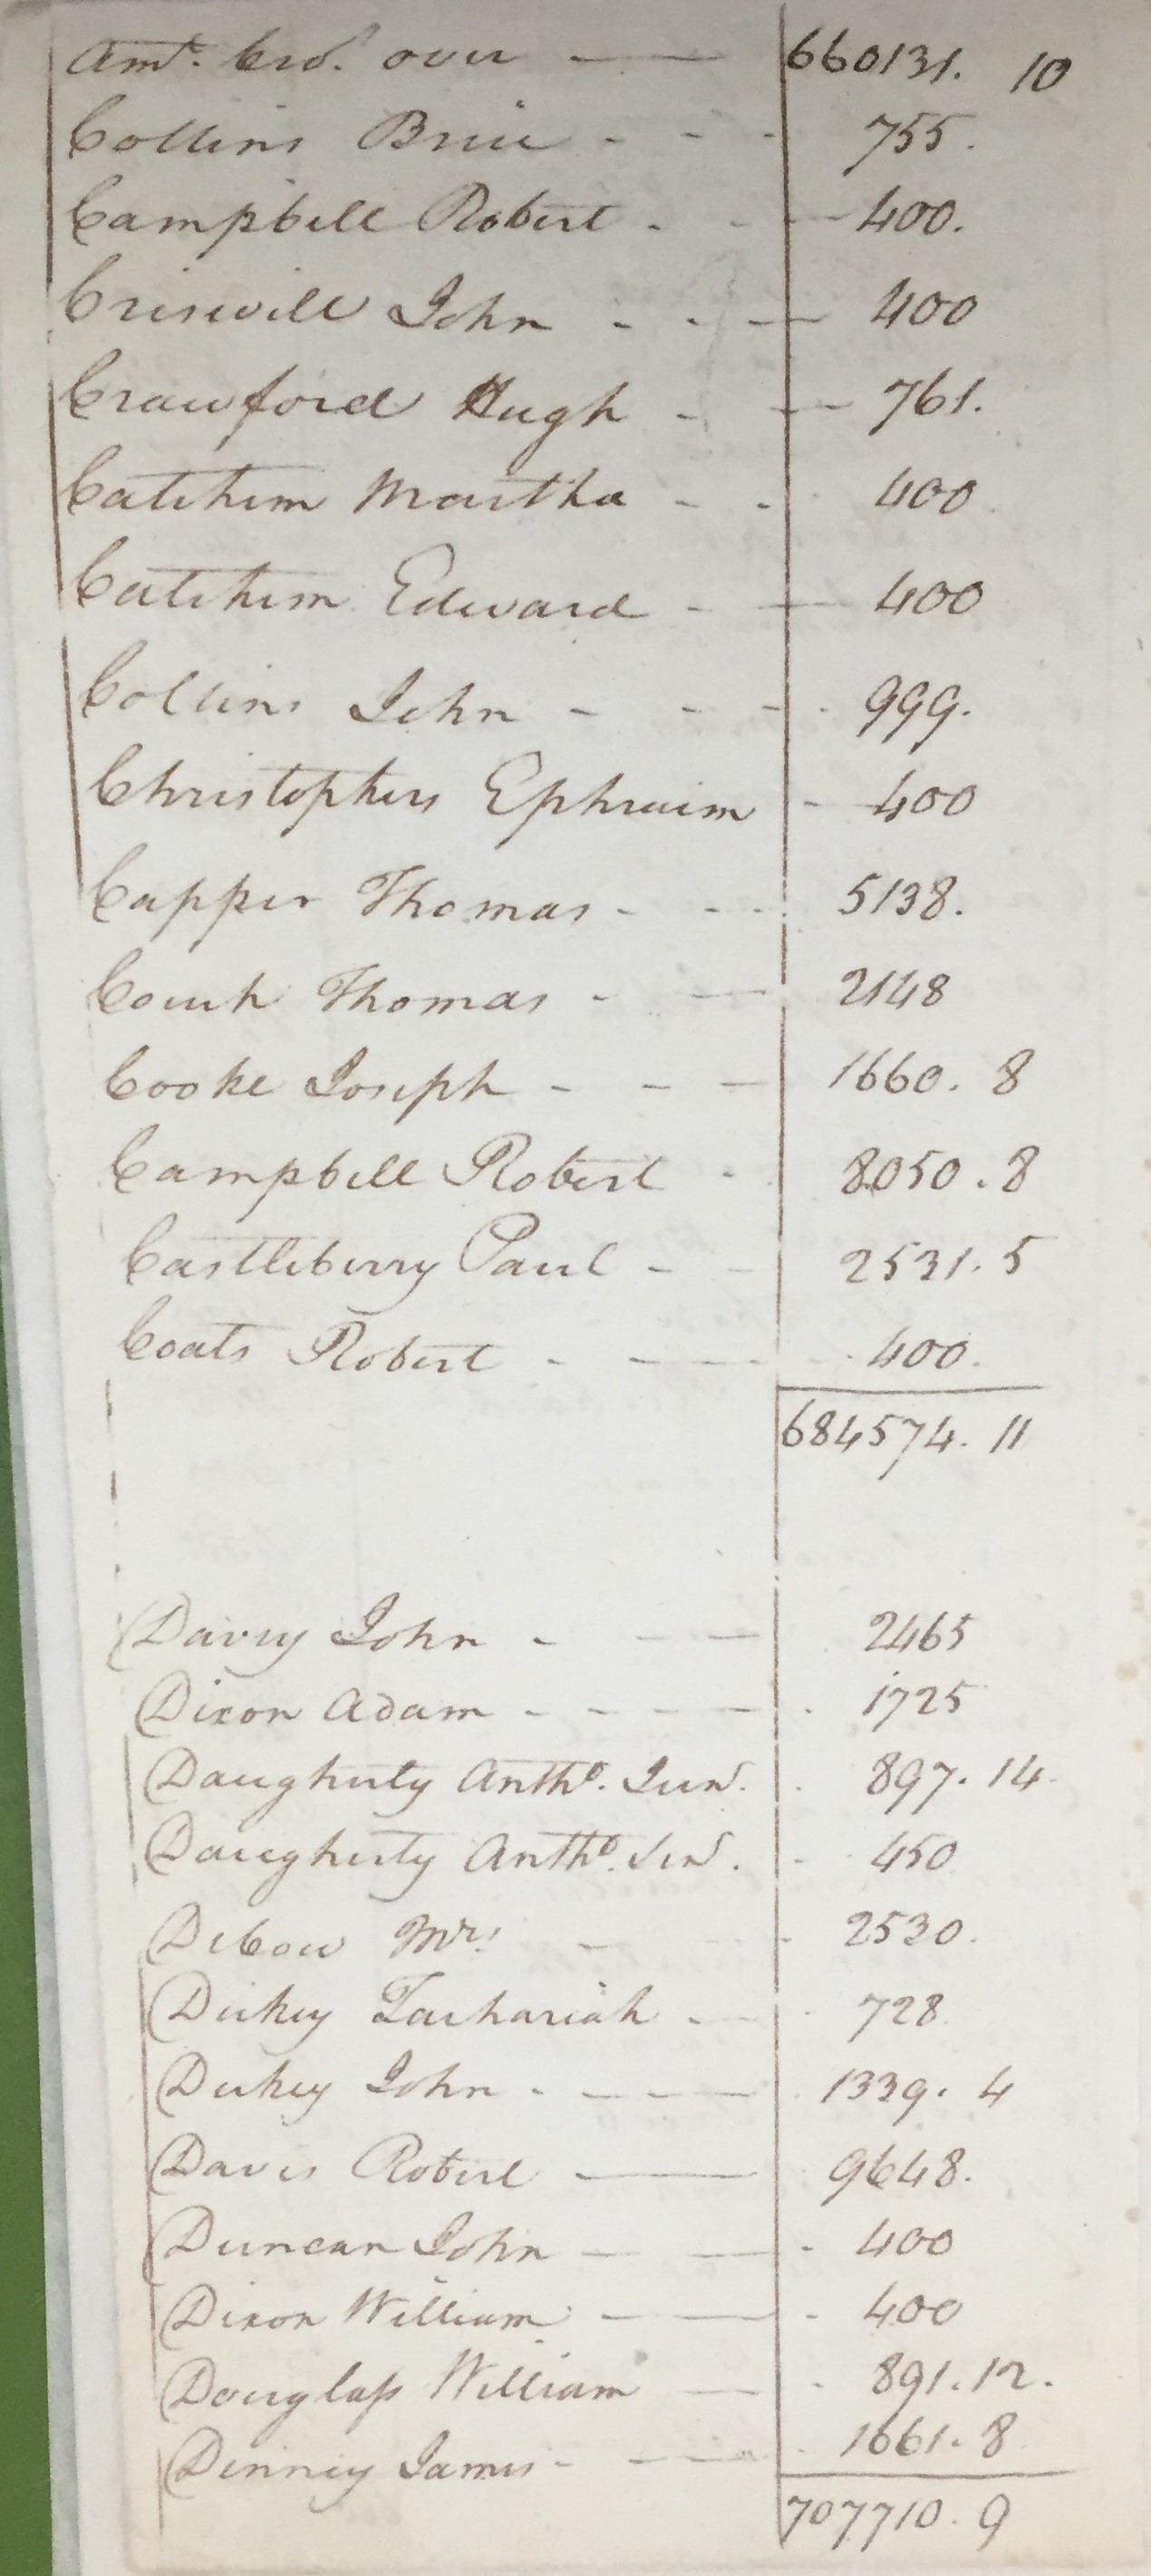 Amt. brot. over — 660131. 10
Collins Brice - - - 755.
Campbell Robert - - - 400.
Criswill John - - - 400
Crawford Hugh - - 761.
Catchim Martha - - 400
Catchim Edward - - 400
Collins John - - - 999.
Christophers Ephraim - 400
Capper Thomas - - - 5138.
Couch Thomas - - 2148
Cooke Joseph - - - 1660. 8
Campbell Robert - 8050. 8
Castleberry Paul - - 2531. 5
Coats Robert - - - 400.
684574. 11
Davey John - - - 2465
Dixon Adam - - - - 1725
Daugherty Antho. Junr. 897. 14
Daugherty Antho. Senr. - 450
Debow Mrs. - - 2530.
Dickey Zachariah - - 728
Dickey John - - - 1339. 4
Davis Robert — 9648.
Duncan John — — 400
Dixon William — — 400
Douglass William — 891. 12.
Dinney James - — 1661. 8
707710. 9